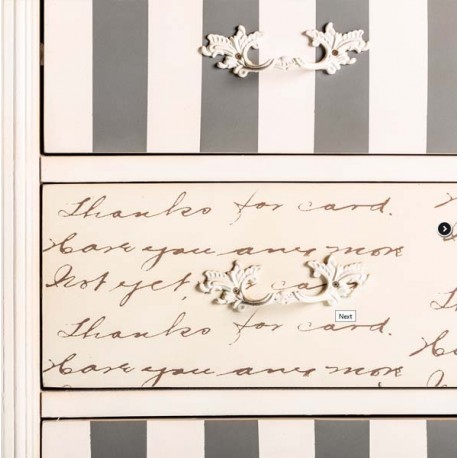 Thanks for card.
Have you any more
Not yet, a card
Thanks for card.
Have you any more
Next